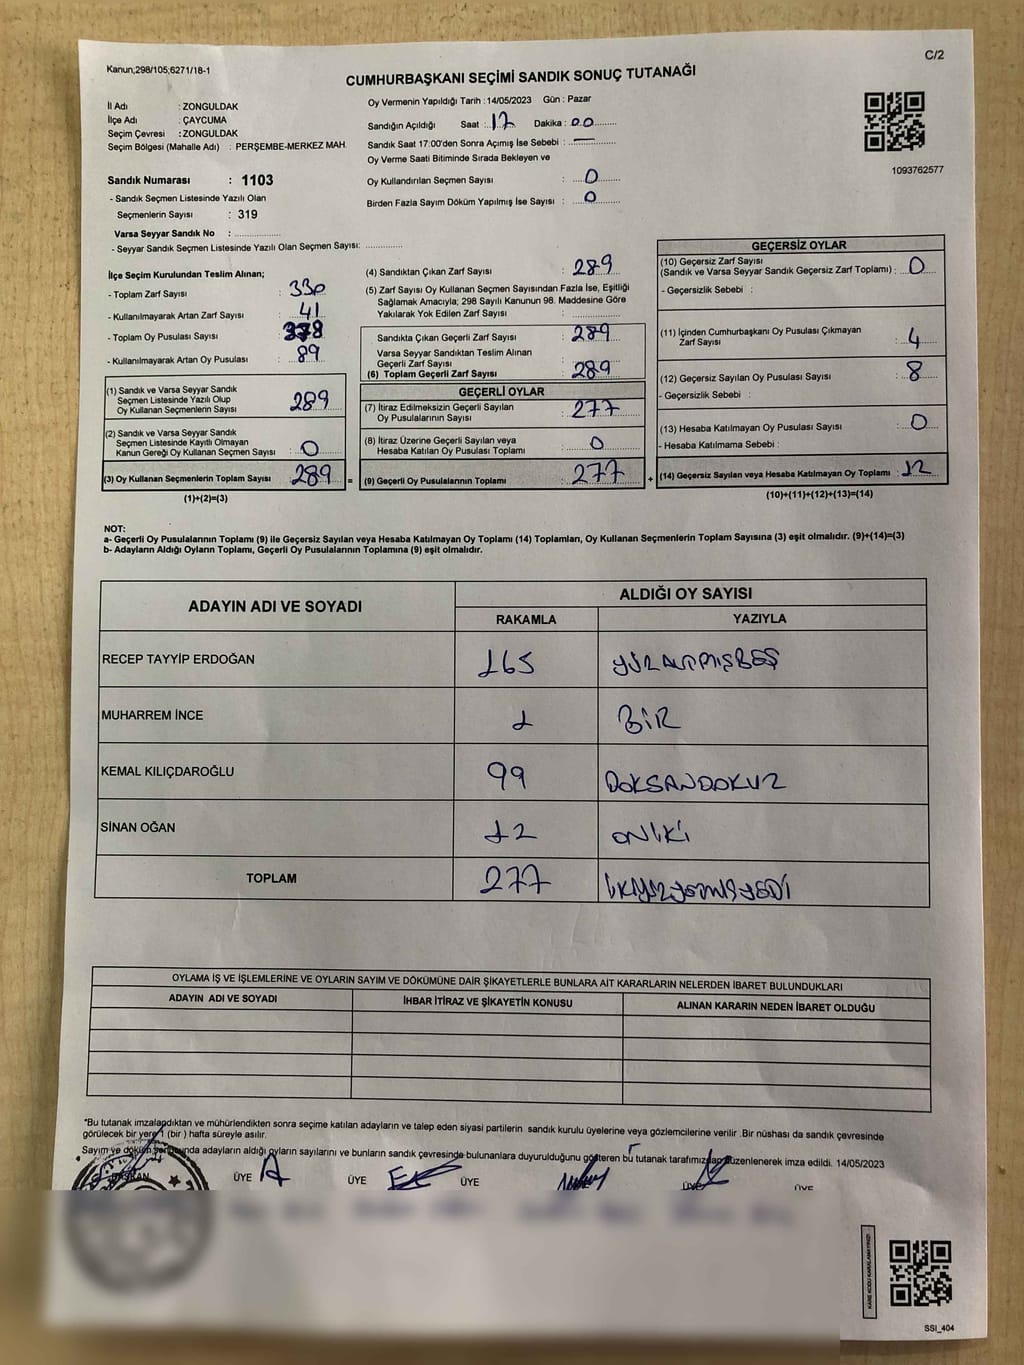 Kanun;298/105;6271/18-1
C/2
CUMHURBAŞKANI SEÇİMİ SANDIK SONUÇ TUTANAĞI
İl Adı : ZONGULDAK
İlçe Adı : ÇAYCUMA
Seçim Çevresi : ZONGULDAK
Seçim Bölgesi (Mahalle Adı) : PERŞEMBE-MERKEZ MAH.
Sandık Numarası : 1103
- Sandık Seçmen Listesinde Yazılı Olan
Seçmenlerin Sayısı : 319
Varsa Seyyar Sandık No : ................
- Seyyar Sandık Seçmen Listesinde Yazılı Olan Seçmen Sayısı: .............
Oy Vermenin Yapıldığı Tarih : 14/05/2023 Gün : Pazar
Sandığın Açıldığı Saat : 17 Dakika : 00
Sandık Saat 17:00'den Sonra Açımış İse Sebebi :
Oy Verme Saati Bitiminde Sırada Bekleyen ve
Oy Kullandırılan Seçmen Sayısı : 0
Birden Fazla Sayım Döküm Yapılmış İse Sayısı : 0
1093762577
İlçe Seçim Kurulundan Teslim Alınan;
- Toplam Zarf Sayısı : 330
- Kullanılmayarak Artan Zarf Sayısı : 41
- Toplam Oy Pusulası Sayısı : 378
- Kullanılmayarak Artan Oy Pusulası : 89
(1) Sandık ve Varsa Seyyar Sandık
Seçmen Listesinde Yazılı Olup
Oy Kullanan Seçmenlerin Sayısı : 289
(2) Sandık ve Varsa Seyyar Sandık
Seçmen Listesinde Kayıtlı Olmayan
Kanun Gereği Oy Kullanan Seçmen Sayısı : 0
(3) Oy Kullanan Seçmenlerin Toplam Sayısı : 289 =
(1)+(2)=(3)
(4) Sandıktan Çıkan Zarf Sayısı : 289
(5) Zarf Sayısı Oy Kullanan Seçmen Sayısından Fazla İse, Eşitliği
Sağlamak Amacıyla; 298 Sayılı Kanunun 98. Maddesine Göre
Yakılarak Yok Edilen Zarf Sayısı : ................
Sandıkta Çıkan Geçerli Zarf Sayısı : 289
Varsa Seyyar Sandıktan Teslim Alınan
Geçerli Zarf Sayısı
(6) Toplam Geçerli Zarf Sayısı : 289
GEÇERLİ OYLAR
(7) İtiraz Edilmeksizin Geçerli Sayılan
Oy Pusulalarının Sayısı : 277
(8) İtiraz Üzerine Geçerli Sayılan veya
Hesaba Katılan Oy Pusulası Toplamı : 0
(9) Geçerli Oy Pusulalarının Toplamı : 277 +
GEÇERSİZ OYLAR
(10) Geçersiz Zarf Sayısı
(Sandık ve Varsa Seyyar Sandık Geçersiz Zarf Toplamı) : 0
- Geçersizlik Sebebi :
(11) İçinden Cumhurbaşkanı Oy Pusulası Çıkmayan
Zarf Sayısı : 4
(12) Geçersiz Sayılan Oy Pusulası Sayısı : 8
- Geçersizlik Sebebi :
(13) Hesaba Katılmayan Oy Pusulası Sayısı : 0
- Hesaba Katılmama Sebebi :
(14) Geçersiz Sayılan veya Hesaba Katılmayan Oy Toplamı : 12
(10)+(11)+(12)+(13)=(14)
NOT:
a- Geçerli Oy Pusulalarının Toplamı (9) ile Geçersiz Sayılan veya Hesaba Katılmayan Oy Toplamı (14) Toplamları, Oy Kullanan Seçmenlerin Toplam Sayısına (3) eşit olmalıdır. (9)+(14)=(3)
b- Adayların Aldığı Oyların Toplamı, Geçerli Oy Pusulalarının Toplamına (9) eşit olmalıdır.
ADAYIN ADI VE SOYADI
ALDIĞI OY SAYISI
RAKAMLA YAZIYLA
RECEP TAYYİP ERDOĞAN 165 YÜZALTMIŞBEŞ
MUHARREM İNCE 1 BİR
KEMAL KILIÇDAROĞLU 99 DOKSANDOKUZ
SİNAN OĞAN 12 ONİKİ
TOPLAM 277 İKİYÜZYETMİŞYEDİ
OYLAMA İŞ VE İŞLEMLERİNE VE OYLARIN SAYIM VE DÖKÜMÜNE DAİR ŞİKAYETLERLE BUNLARA AİT KARARLARIN NELERDEN İBARET BULUNDUKLARI
ADAYIN ADI VE SOYADI İHBAR İTİRAZ VE ŞİKAYETİN KONUSU ALINAN KARARIN NEDEN İBARET OLDUĞU
*Bu tutanak imzalandıktan ve mühürlendikten sonra seçime katılan adayların ve talep eden siyasi partilerin sandık kurulu üyelerine veya gözlemcilerine verilir .Bir nüshası da sandık çevresinde
görülecek bir yere 1 (bir ) hafta süreyle asılır.
Sayım ve döküm adayların aldığı oyların sayılarını ve bunların sandık çevresinde bulunanlara duyurulduğunu gösteren bu tutanak tarafımızdan düzenlenerek imza edildi. 14/05/2023
BAŞKAN ÜYE ÜYE ÜYE ÜYE ÜYE
KARE KODU KARALAMAYINIZ!
SSI_404